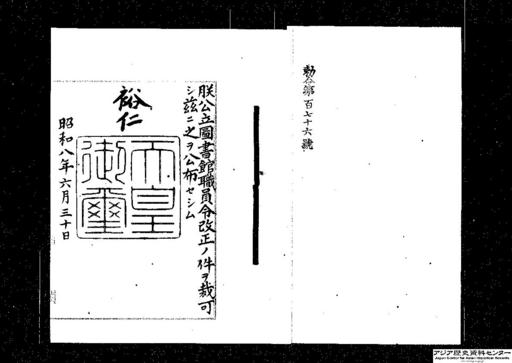 勅令第百七十六號
朕公立圖書館職員令改正ノ件ヲ裁可
シ茲ニ之ヲ公布セシム
裕仁
天皇
御璽
昭和八年六月三十日
アジア歴史資料センター
Japan Center for Asian Historical Records